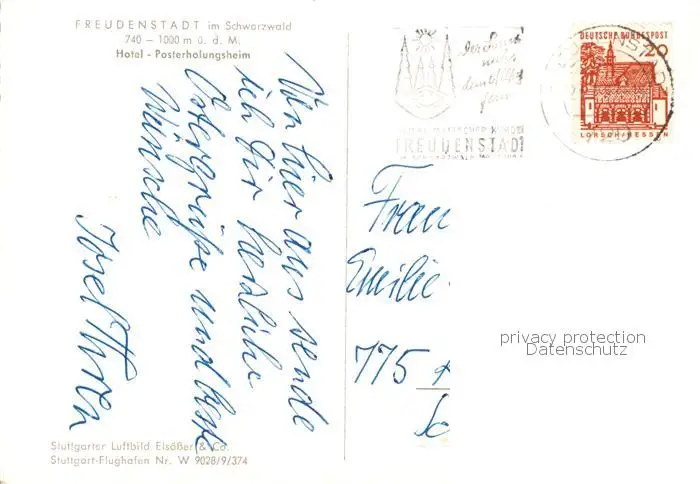 FREUDENSTADT im Schwarzwald
740 – 1000 m ü. d. M.
Hotel - Posterholungsheim
Von hier aus sende
ich Dir herzliche
Ostergrüße und beste
Wünsche
Josef
FREUDENSTADT
DEUTSCHE BUNDESPOST
20
LORSCH/HESSEN
Frau
Emilie
775
privacy protection
Datenschutz
Stuttgarter Luftbild Elsäßer & Co.
Stuttgart-Flughafen Nr. W 9028/9/374